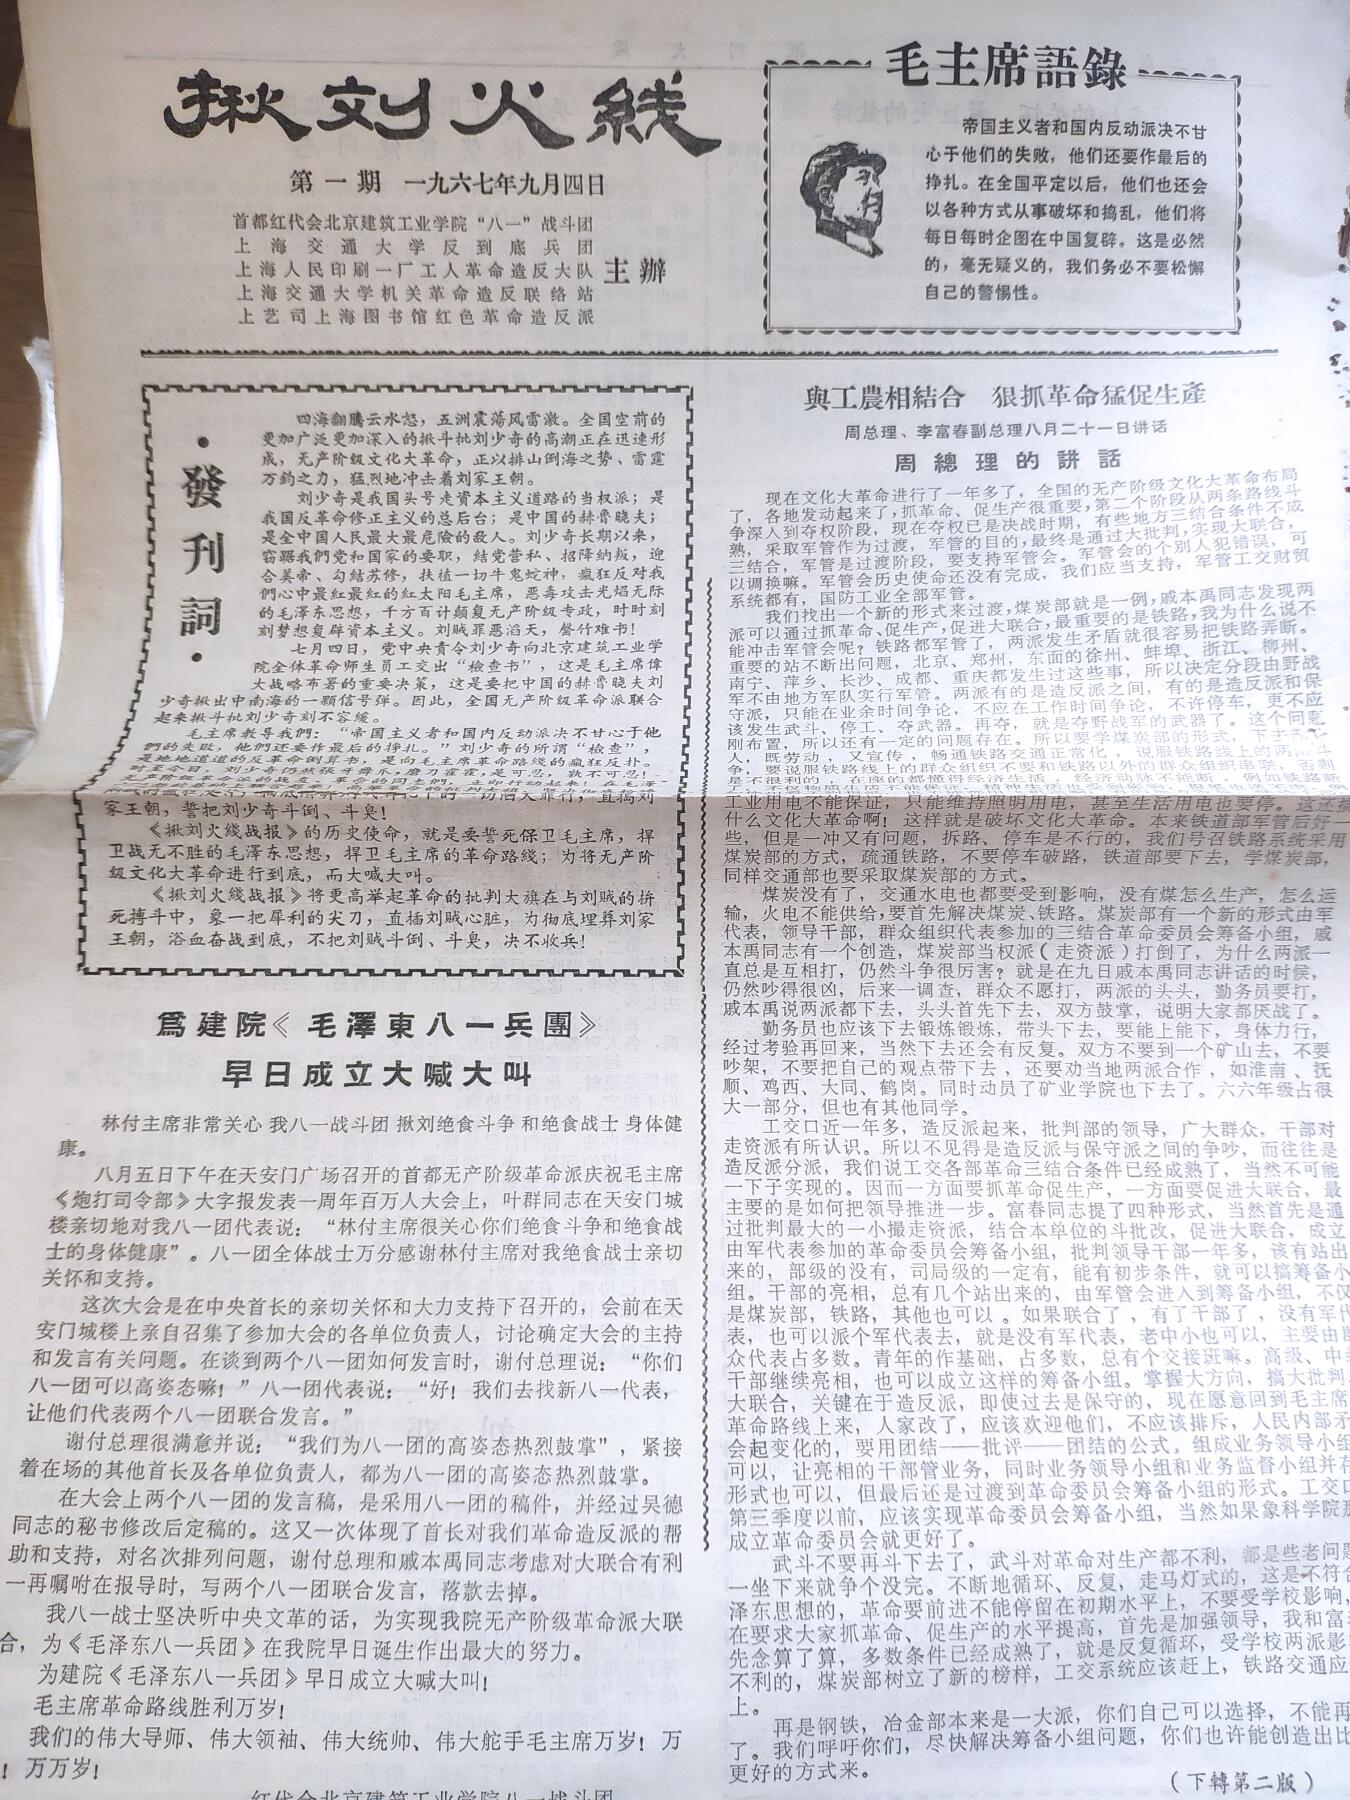 揪刘火线
第一期 一九六七年九月四日
首都红代会北京建筑工业学院“八一”战斗团
上海交通大学反到底兵团
上海人民印刷一厂工人革命造反大队
上海交通大学机关革命造反联络站
上艺司上海图书馆红色革命造反派
主辦
毛主席語錄
帝国主义者和国内反动派决不甘
心于他们的失败，他们还要作最后的
挣扎。在全国平定以后，他们也还会
以各种方式从事破坏和捣乱，他们将
每日每时企图在中国复辟。这是必然
的，毫无疑义的，我们务必不要松懈
自己的警惕性。
·發刊詞·
四海翻騰云水怒，五洲震荡风雷激。全国空前的
更加广泛更加深入的揪斗批刘少奇的高潮正在迅速形
成，无产阶级文化大革命，正以排山倒海之势、雷霆
万钧之力，猛烈地冲击着刘家王朝。
刘少奇是我国头号走资本主义道路的当权派；是
我国反革命修正主义的总后台；是中国的赫鲁晓夫；
是全中国人民最大最危险的敌人。刘少奇长期以来，
窃踞我們党和国家的要职，結党营私、招降納叛，迎
合美帝、勾結苏修，扶植一切牛鬼蛇神，瘋狂反对我
們心中最红最红的红太阳毛主席，恶毒攻击光焰无际
的毛泽东思想，千方百计颠复无产阶级专政，时时刻
刻梦想复辟资本主义。刘贼罪恶滔天，罄竹难书！
七月四日，党中央责令刘少奇向北京建筑工业学
院全体革命师生员工交出“檢查书”，这是毛主席偉
大战略布署的重要决策，这是要把中国的赫鲁晓夫刘
少奇揪出中南海的一颗信号弹。因此，全国无产阶级革命派联合
起来揪斗批刘少奇刻不容緩。
毛主席教导我們：“帝国主义者和国内反动派决不甘心于他
們的失败，他們还要作最后的挣扎。”刘少奇的所謂“檢查”，
是地地道道的反革命倒算书，是向毛主席革命路线的瘋狂反扑。
时至今日，刘少奇仍然張牙舞爪，磨刀霍霍，是可忍，孰不可忍！
家王朝，誓把刘少奇斗倒、斗臭！
《揪刘火綫战报》的历史使命，就是要誓死保卫毛主席，捍
卫战无不胜的毛泽东思想，捍卫毛主席的革命路綫；为将无产阶
级文化大革命进行到底，而大喊大叫。
《揪刘火綫战报》将更高举起革命的批判大旗在与刘贼的拚
死搏斗中，象一把犀利的尖刀，直插刘贼心脏，为彻底埋葬刘家
王朝，浴血奋战到底，不把刘贼斗倒、斗臭，决不收兵！
爲建院《毛澤東八一兵團》
早日成立大喊大叫
林付主席非常关心 我八一战斗团 揪刘绝食斗争 和绝食战士 身体健
康。
八月五日下午在天安门广场召开的首都无产阶级革命派庆祝毛主席
《炮打司令部》大字报发表一周年百万人大会上，叶群同志在天安门城
楼亲切地对我八一团代表说：“林付主席很关心你们绝食斗争和绝食战
士的身体健康”。八一团全体战士万分感谢林付主席对我绝食战士亲切
关怀和支持。
这次大会是在中央首长的亲切关怀和大力支持下召开的，会前在天
安门城楼上亲自召集了参加大会的各单位负责人，讨论确定大会的主持
和发言有关问题。在谈到两个八一团如何发言时，谢付总理说：“你们
八一团可以高姿态嘛！”八一团代表说：“好！我们去找新八一代表，
让他们代表两个八一团联合发言。”
谢付总理很满意并说：“我们为八一团的高姿态热烈鼓掌”，紧接
着在场的其他首长及各单位负责人，都为八一团的高姿态热烈鼓掌。
在大会上两个八一团的发言稿，是采用八一团的稿件，并经过吴德
同志的秘书修改后定稿的。这又一次体现了首长对我们革命造反派的帮
助和支持，对名次排列问题，谢付总理和戚本禹同志考虑对大联合有利
一再嘱咐在报导时，写两个八一团联合发言，落款去掉。
我八一战士坚决听中央文革的话，为实现我院无产阶级革命派大联
合，为《毛泽东八一兵团》在我院早日诞生作出最大的努力。
为建院《毛泽东八一兵团》早日成立大喊大叫！
毛主席革命路线胜利万岁！
我们的伟大导师、伟大领袖、伟大统帅、伟大舵手毛主席万岁！万
！万万岁！
红代会北京建筑工业学院八一战斗团
與工農相結合 狠抓革命猛促生產
周总理、李富春副总理八月二十一日讲话
周總理的講話
现在文化大革命进行了一年多了，全国的无产阶级文化大革命布局
了，各地发动起来了，抓革命、促生产很重要，第二个阶段从两条路线斗
争深入到夺权阶段，现在夺权已是决战时期，有些地方三结合条件不成
熟，采取军管作为过渡，军管的目的，最终是通过大批判，实现大联合，
三结合，军管是过渡阶段，要支持军管会。军管会的个别人犯错误，可
以调换嘛。军管会历史使命还没有完成，我们应当支持，军管工交财贸
系统都有，国防工业全部军管。
我们找出一个新的形式来过渡，煤炭部就是一例，戚本禹同志发现两
派可以通过抓革命、促生产，促进大联合，最重要的是铁路，我为什么说不
能冲击军管会呢？铁路都军管了，两派发生矛盾就很容易把铁路弄断。
重要的站不断出问题，北京、郑州，东面的徐州、蚌埠、浙江、柳州、
南宁、萍乡、长沙、成都、重庆都发生过这些事，所以决定分段由野战
军不由地方军队实行军管。两派有的是造反派之间，有的是造反和保
守派，只能在业余时间争论，不应在工作时间争论，不许停车，更不应
该发生武斗、停工、夺武器。再夺，就是夺野战军的武器了。这个问题
刚布置，所以还有一定的问题存在。所以要学煤炭部的形式，下去
人，既劳动，又宣传，畅通铁路交通正常化，说服铁路线上的两派斗
争，要说服铁路线上的群众组织不要和铁路以外的群众组织串联，否则
工业用电不能保证，只能维持照明用电，甚至生活用电也要停。这还搞
什么文化大革命啊！这样就是破坏文化大革命。本来铁道部军管后好一
些，但是一冲又有问题，拆路、停车是不行的，我们号召铁路系统采用
煤炭部的方式，疏通铁路，不要停车破路，铁道部要下去，学煤炭部，
同样交通部也要采取煤炭部的方式。
煤炭没有了，交通水电也都要受到影响，没有煤怎么生产，怎么运
输，火电不能供给，要首先解决煤炭、铁路。煤炭部有一个新的形式由军
代表，领导干部，群众组织代表参加的三结合革命委员会筹备小组，戚
本禹同志有一个创造，煤炭部当权派（走资派）打倒了，为什么两派一
直总是互相打，仍然斗争很厉害？就是在九日戚本禹同志讲话的时候，
仍然吵得很凶，后来一调查，群众不愿打，两派的头头，勤务员要打，
戚本禹说两派都下去，头头首先下去，双方鼓掌，说明大家都厌战了。
勤务员也应该下去锻炼锻炼，带头下去，要能上能下，身体力行，
经过考验再回来，当然下去还会有反复。双方不要到一个矿山去，不要
吵架，不要把自己的观点带下去，还要劝当地两派合作，如淮南、抚
顺、鸡西、大同、鹤岗。同时动员了矿业学院也下去了。六六年级占很
大一部分，但也有其他同学。
工交口近一年多，造反派起来，批判部的领导，广大群众，干部对
走资派有所认识。所以不见得是造反派与保守派之间的争吵，而往往是
造反派分派，我们说工交各部革命三结合条件已经成熟了，当然不可能
一下子实现的。因而一方面要抓革命促生产，一方面要促进大联合，最
主要的是如何把领导推进一步。富春同志提了四种形式，当然首先是通
过批判最大的一小撮走资派，结合本单位的斗批改，促进大联合，成立
由军代表参加的革命委员会筹备小组，批判领导干部一年多，该有站出
来的，部级的没有，司局级的一定有，能有初步条件，就可以搞筹备小
组。干部的亮相，总有几个站出来的，由军管会进入到筹备小组，不仅
是煤炭部，铁路，其他也可以。如果联合了，有了干部了，没有军代
表，也可以派个军代表去，就是没有军代表，老中小也可以，主要由群
众代表占多数。青年的作基础，占多数，总有个交接班嘛。高级、中级
干部继续亮相，也可以成立这样的筹备小组。掌握大方向，搞大批判、
大联合，关键在于造反派，即使过去是保守的，现在愿意回到毛主席
革命路线上来，人家改了，应该欢迎他们，不应该排斥，人民内部矛
会起变化的，要用团结——批评——团结的公式。组成业务领导小组
可以，让亮相的干部管业务，同时业务领导小组和业务监督小组并存
形式也可以，但最后还是过渡到革命委员会筹备小组的形式。工交口
第三季度以前，应该实现革命委员会筹备小组，当然如果象科学院那
成立革命委员会就更好了。
武斗不要再斗下去了，武斗对革命对生产都不利，都是些老问题
一坐下来就争个没完。不断地循环、反复，走马灯式的，这是不符合
泽东思想的，革命要前进不能停留在初期水平上，不要受学校影响，
在要求大家抓革命、促生产的水平提高，首先是加强领导，我和富春
先念算了算，多数条件已经成熟了，就是反复循环，受学校两派影
不利的，煤炭部树立了新的榜样，工交系统应该赶上，铁路交通应
上。
再是钢铁，冶金部本来是一大派，你们自己可以选择，不能再
了。我们呼吁你们，尽快解决筹备小组问题，你们也许能创造出比
更好的方式来。
（下轉第二版）